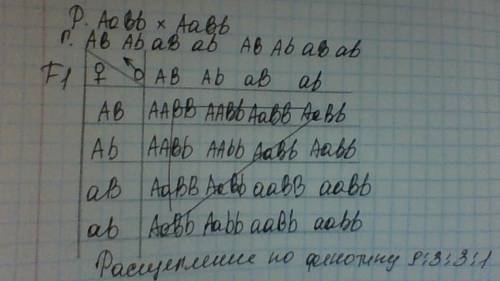 P. AaBb × AaBb
Г. AB Ab aB ab AB Ab aB ab
F1 ♀ ♂ AB Ab aB ab
AB AABB AABb AaBB AaBb
Ab AABb AAbb AaBb Aabb
aB AaBB AaBb aaBB aaBb
ab AaBb Aabb aaBb aabb
Расщепление по фенотипу 9:3:3:1